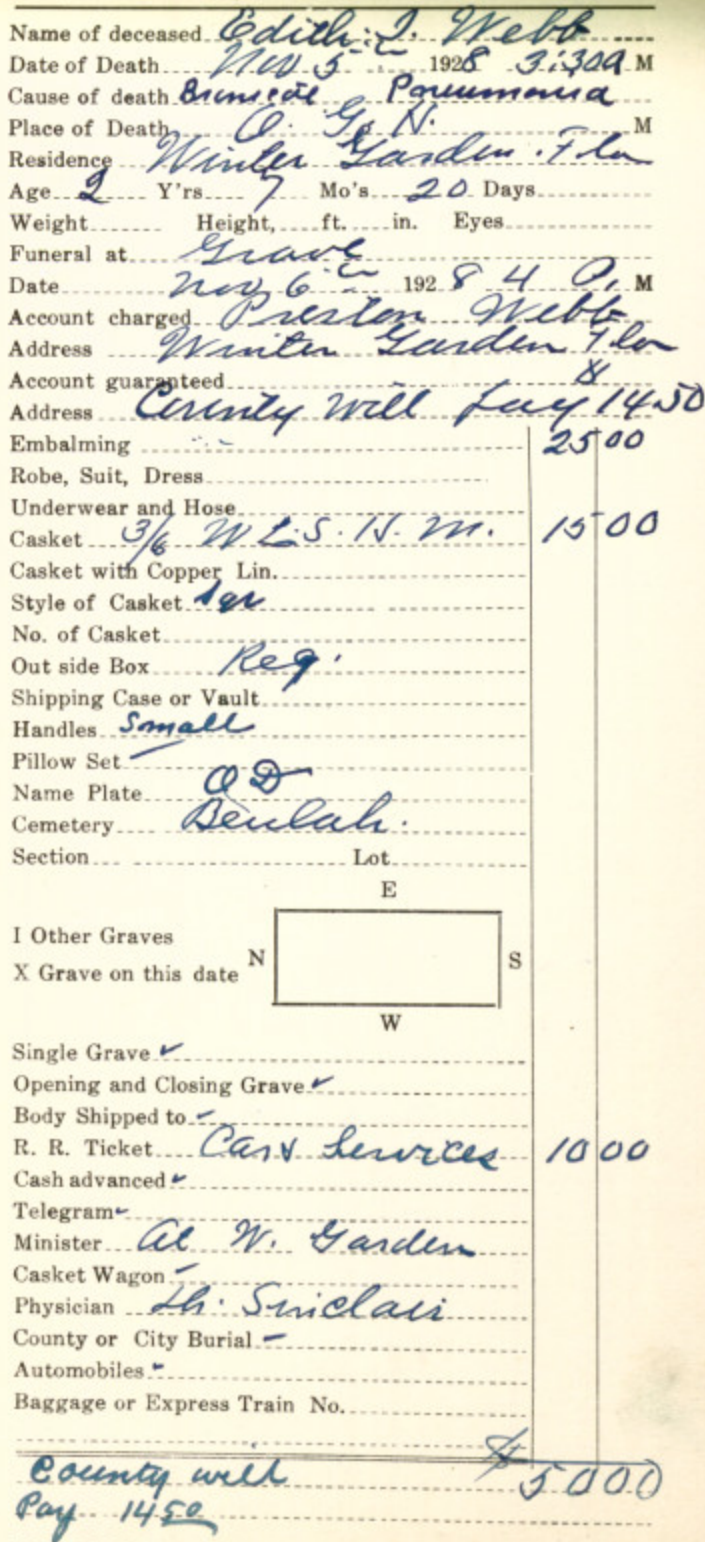 Name of deceased Edith. I. Webb
Date of Death Nov 5 1928 3:30 a M
Cause of death Pneumonia
Place of Death O. G. H. M
Residence Winter Garden. Fla
Age 2 Y'rs 7 Mo's 20 Days
Weight Height, ft. in. Eyes
Funeral at Grave
Date Nov 6 1928 4 P. M
Account charged Preston Webb
Address Winter Garden Fla
Account guaranteed
Address County will pay 14.50
Embalming 25 00
Robe, Suit, Dress
Underwear and Hose
Casket 3/6 15 00
Casket with Copper Lin.
Style of Casket Sqr
No. of Casket
Out side Box Reg.
Shipping Case or Vault
Handles Small
Pillow Set
Name Plate O D
Cemetery Beulah.
Section Lot
E
I Other Graves
X Grave on this date N S
W
Single Grave
Opening and Closing Grave
Body Shipped to
R. R. Ticket Car & Services 10 00
Cash advanced
Telegram
Minister At W. Garden
Casket Wagon
Physician Sinclair
County or City Burial
Automobiles
Baggage or Express Train No.
$ 50 00
County will
Pay 14 50